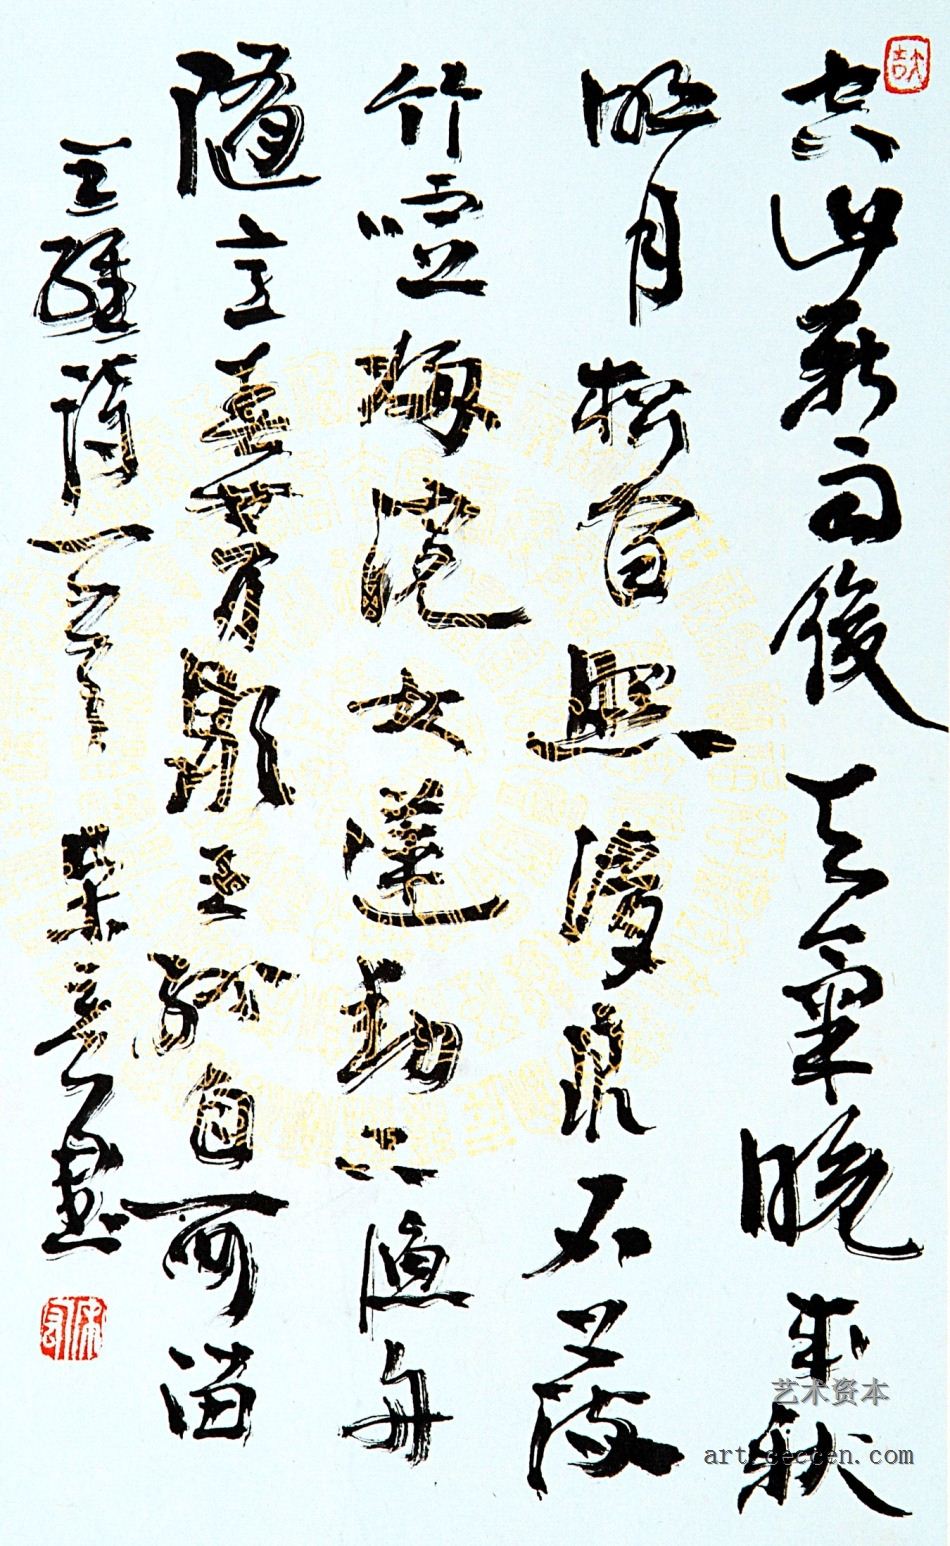 空山新雨後天氣晚來秋
明月松間照清泉石上流
竹喧歸浣女蓮動下漁舟
隨意春芳歇王孫自可留
王維詩一首
艺术资本
art.ceccen.com